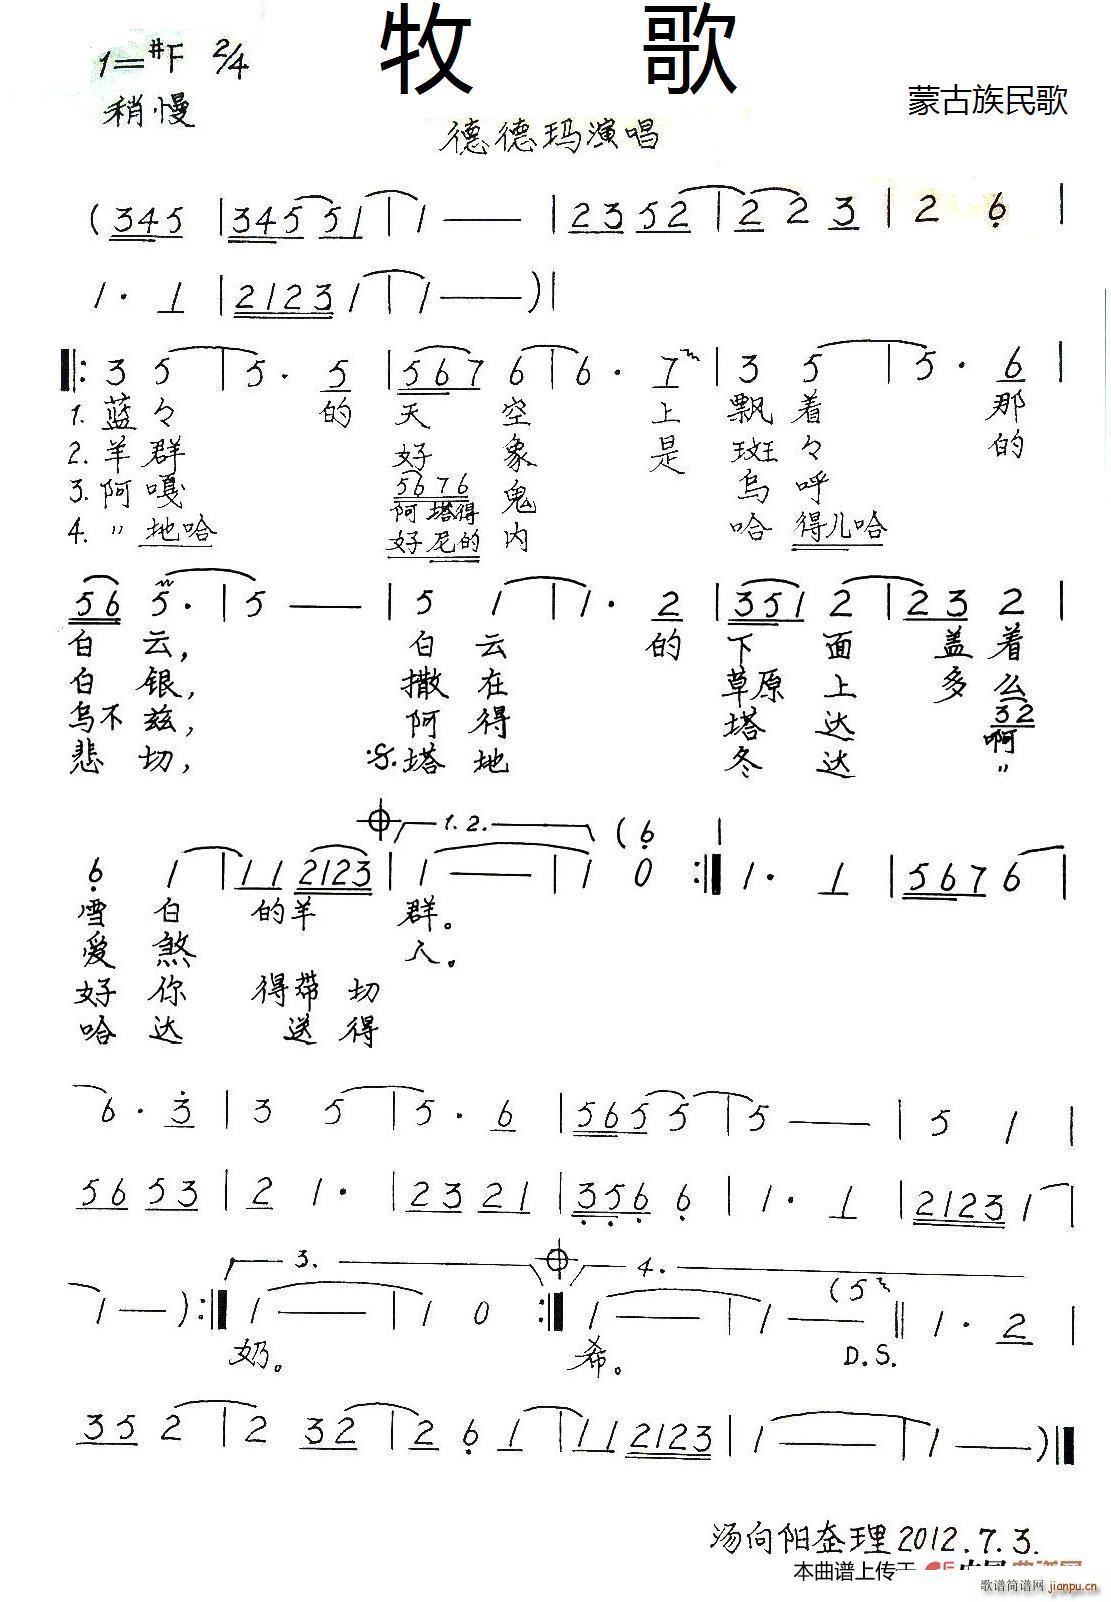 牧 歌
1=#F 2/4
稍慢
蒙古族民歌
德德玛演唱
(345 | 3455 51 | 1 — | 2352 | 2 2 3 | 2 6 |
1· 1 | 2123 1 | 1 — ) |
‖: 3 5 | 5· 5 | 567 6 | 6· 7 | 3 5 | 5· 6 |
1. 蓝々 的 天 空 上 飘着 那
2. 羊群 好 象 是 斑々 的
3. 阿嘎 5676 鬼 乌呼
阿塔得
4. 〃地哈 好尼的 内 哈得儿哈
56 5· | 5 — | 5 1 | 1· 2 | 351 2 | 2 3 2 |
白云, 白云 的 下 面 盖着
白银, 撒在 草原 上 多么
乌不兹, 阿得 塔 达 32
悲切, 塔地 冬 达 啊〃
6 1 | 11 2123 | 1 — | 1 0 (6 :‖ 1· 1 | 567 6 |
1. 2.
雪白 的羊 群。
爱煞 人。
好你 得带切
哈达 送得
6· 3 | 3 5 | 5· 6 | 565 5 | 5 — | 5 1 |
56 53 | 2 1· | 23 21 | 356 6 | 1· 1 | 2123 1 |
3. 4.
1 — ) :‖ 1 — | 1 0 :‖ 1 — | 1 — (5 ‖ 1· 2 |
奶。 希。 D.S.
35 2 | 2 32 | 2 6 1 | 11 2123 | 1 — | 1 — ) ‖
汤向阳整理2012.7.3.
本曲谱上传于
歌谱简谱网
jianpu.cn